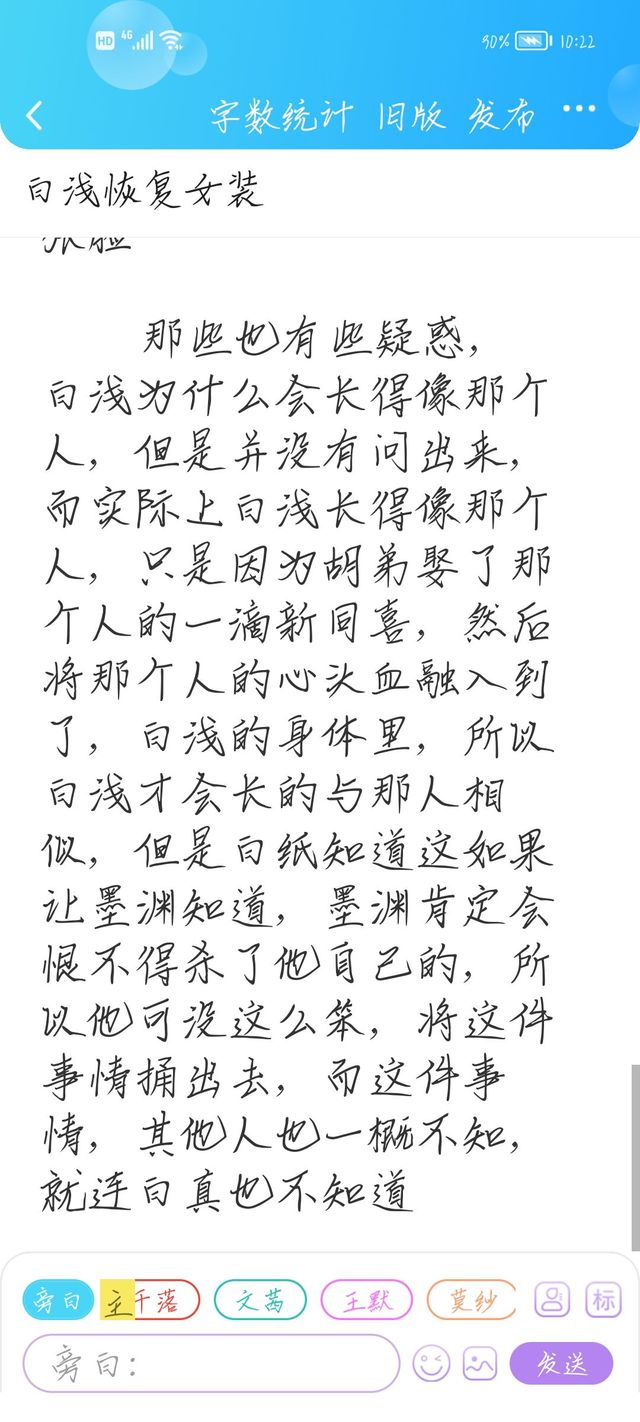 HD 4G 30% 10:22
字数统计 旧版 发布
白浅恢复女装
张脸
那些也有些疑惑，
白浅为什么会长得像那个
人，但是并没有问出来，
而实际上白浅长得像那个
人，只是因为胡弟娶了那
个人的一滴新同喜，然后
将那个人的心头血融入到
了，白浅的身体里，所以
白浅才会长的与那人相
似，但是白纸知道这如果
让墨渊知道，墨渊肯定会
恨不得杀了他自己的，所
以他可没这么笨，将这件
事情捅出去，而这件事
情，其他人也一概不知，
就连白真也不知道
旁白 主 千落 文茜 王默 莫纱 标
旁白： 发送